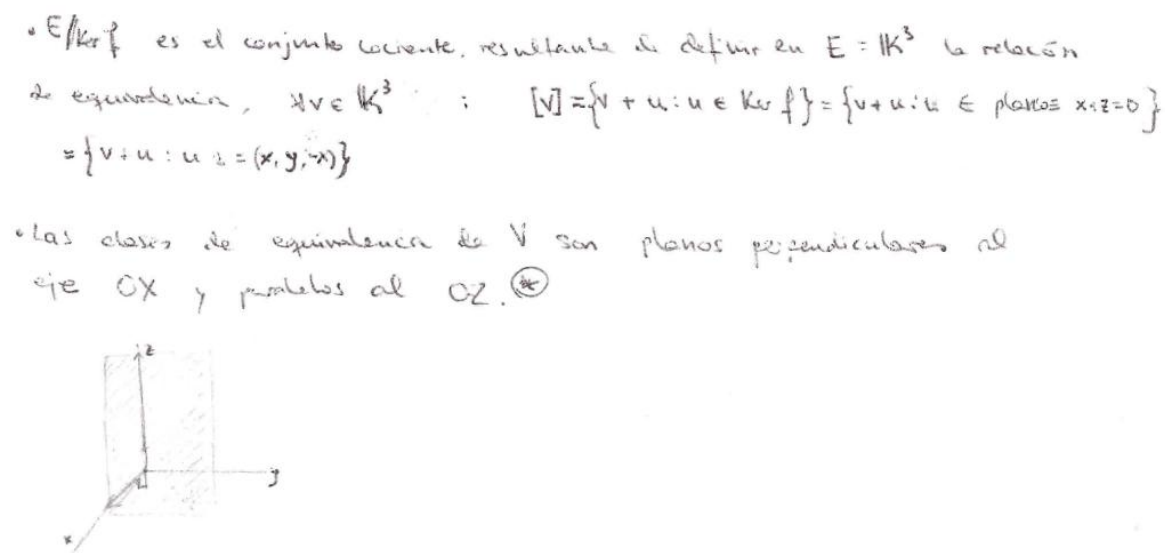 • E/Ker f es el conjunto cociente, resultante de definir en E = 𝕂³ la relación
de equivalencia, ∀v ∈ 𝕂³ : [v] = {v + u : u ∈ Ker f} = {v + u : u ∈ plano ≡ x+z=0}
= {v + u : u = (x, y, -x)}
• Las clases de equivalencia de V son planos perpendiculares al
eje OX y paralelos al OZ. *
z
y
x